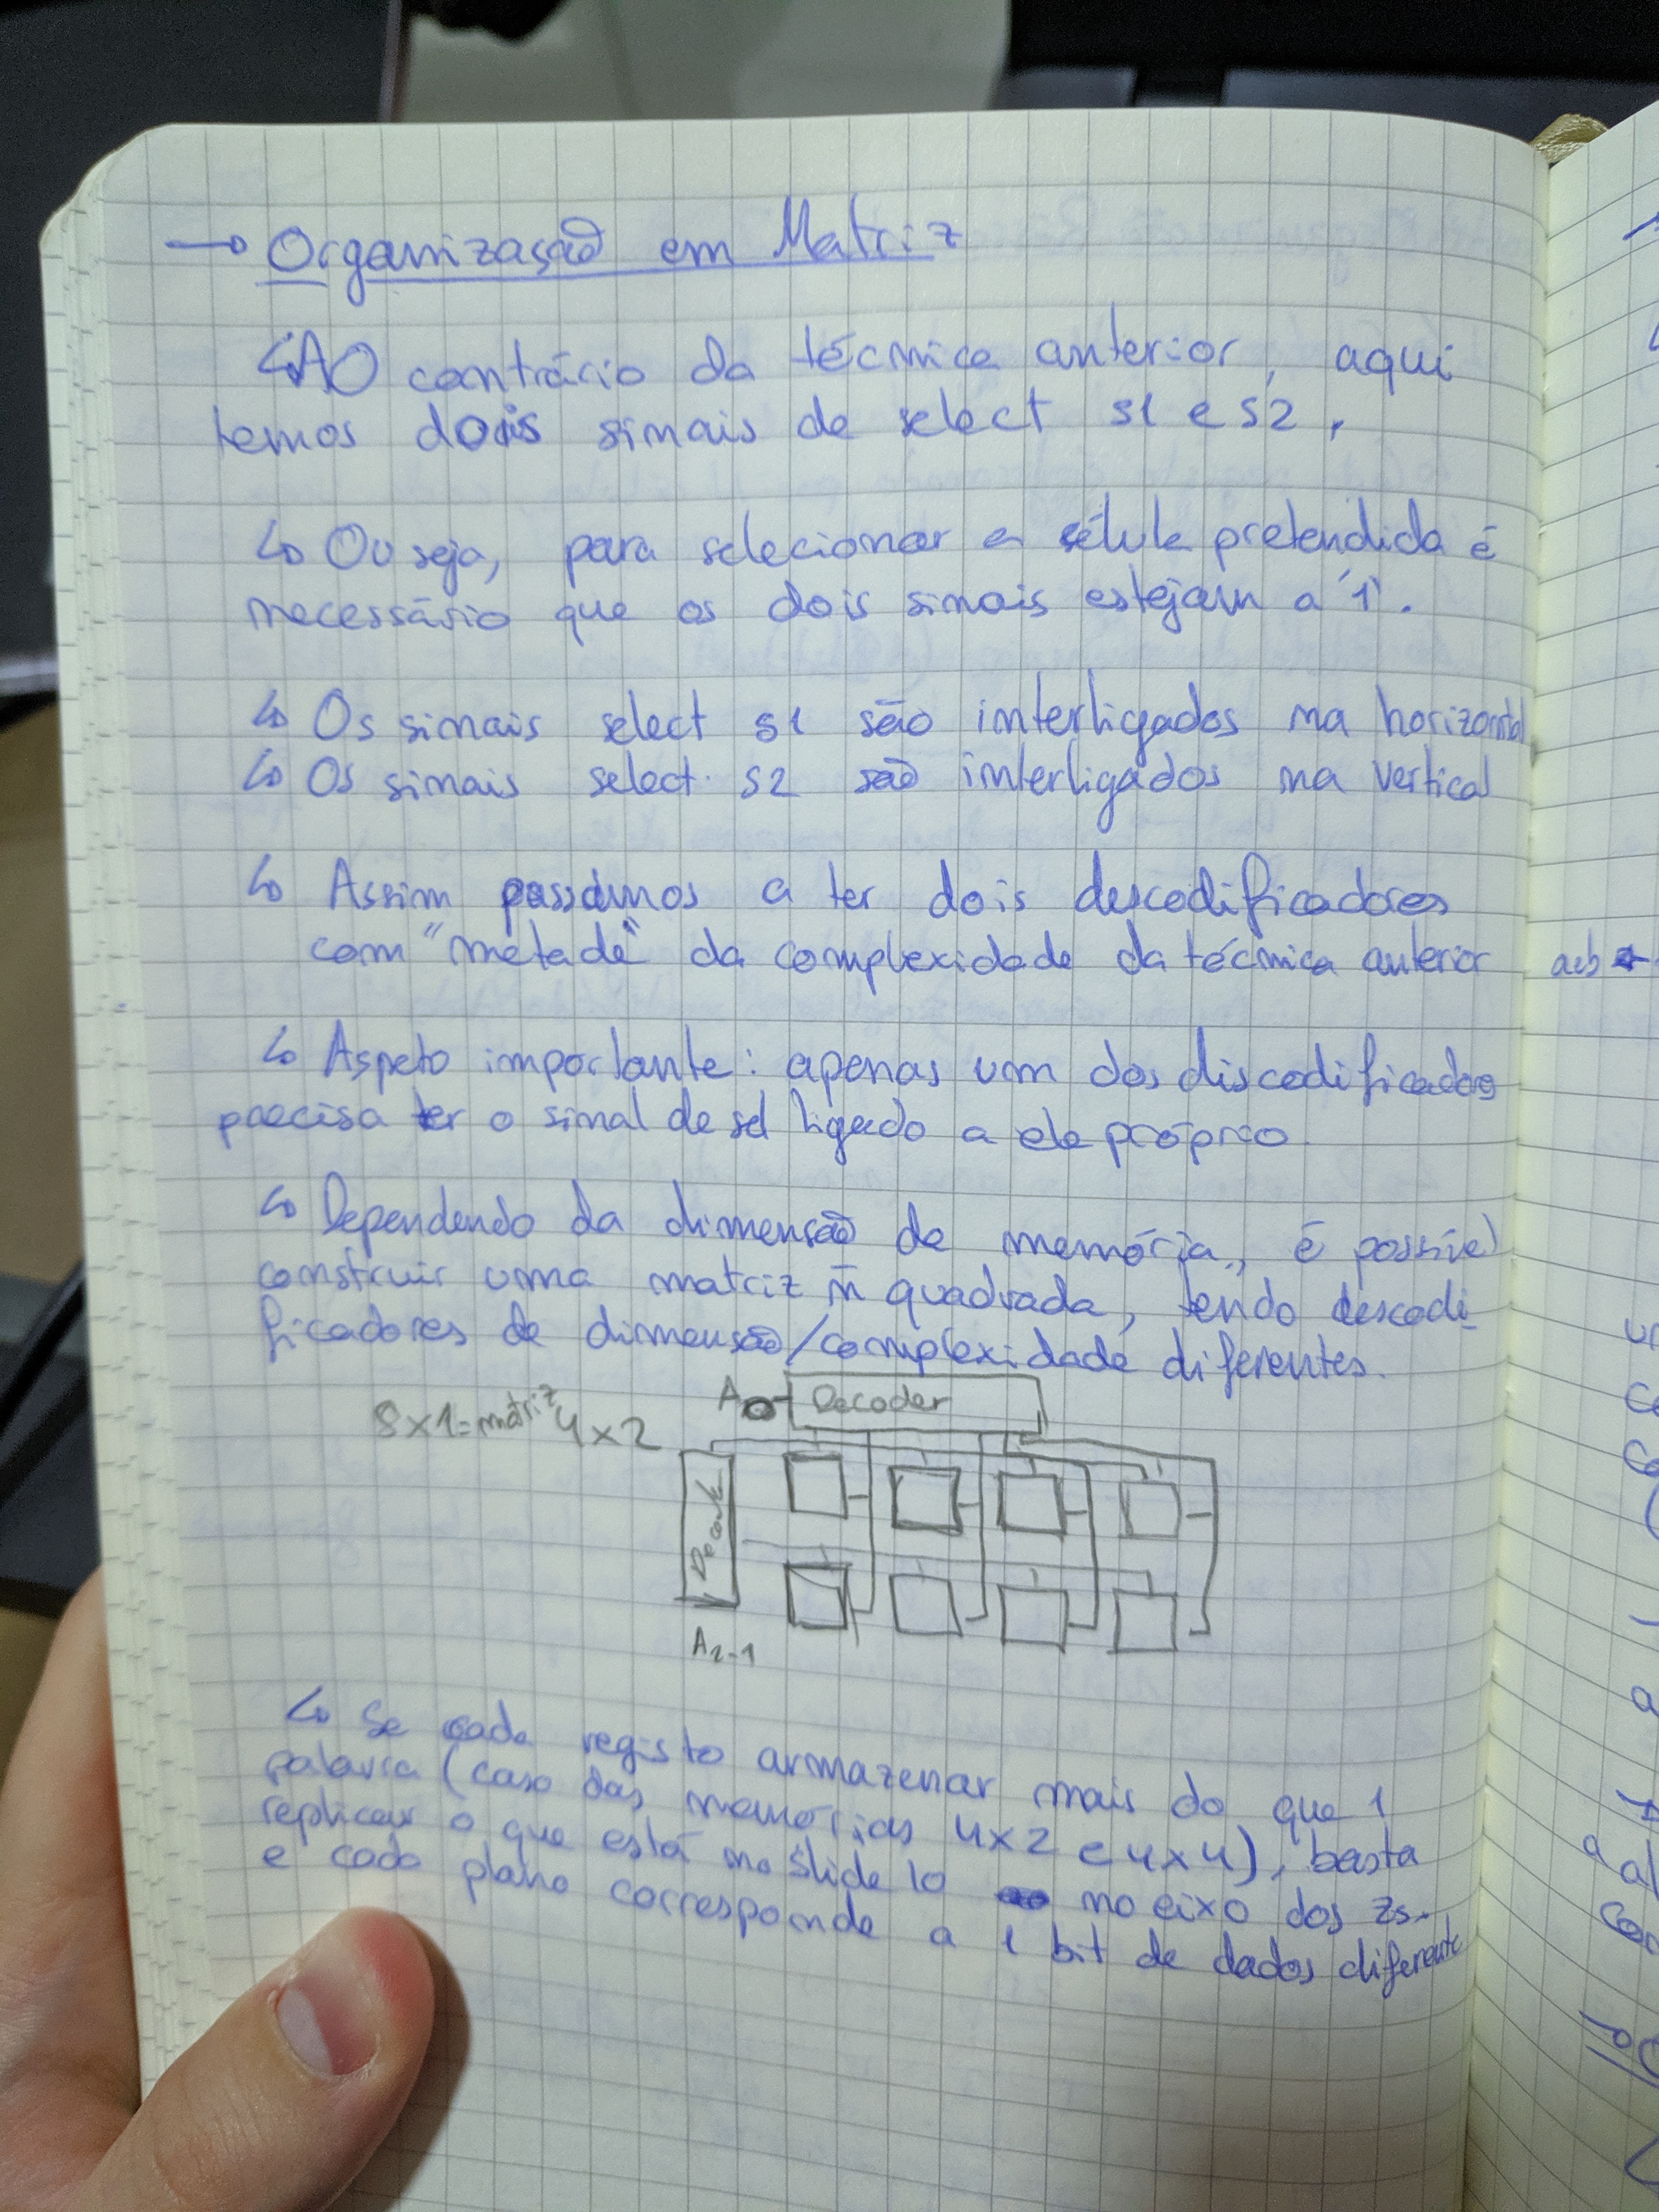 → Organização em Matriz
↳ AO contrário da técnica anterior, aqui
temos dois sinais de select s1 e s2.
↳ Ou seja, para selecionar a célula pretendida é
necessário que os dois sinais estejam a '1'.
↳ Os sinais select s1 são interligados na horizontal
↳ Os sinais select s2 são interligados na vertical
↳ Assim passamos a ter dois descodificadores
com "metade" da complexidade da técnica anterior
↳ Aspeto importante: apenas um dos discodificadores
precisa ter o sinal de sel ligado a ele próprio
↳ Dependendo da dimensão de memória, é possível
construir uma matriz ñ quadrada, tendo descodi
ficadores de dimensão/complexidade diferentes.
A0 Decoder
8x1=matriz 4x2
A2-1
↳ Se cada registo armazenar mais do que 1
palavra (caso das memórias 4x2 e 4x4), basta
replicar o que está no slide 10 no eixo dos zs.
e cada plano corresponde a 1 bit de dados diferente